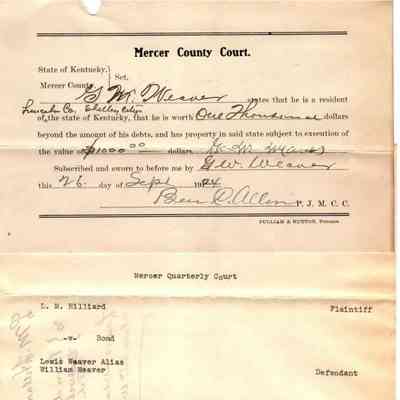 Mercer County Court.
State of Kentucky,
Sct.
Mercer County.
G. W. Weaver states that he is a resident
Lincoln Co.
of the state of Kentucky, that he is worth One Thousand dollars
beyond the amount of his debts, and has property in said state subject to execution of
the value of $1000 00 dollars.
Subscribed and sworn to before me by G. W. Weaver
this 26 day of Sept 1924
Ben D. Allin P. J. M. C. C.
PULLIAM & NUNTON, Printers
Mercer Quarterly Court
L. M. Hilliard
Plaintiff
-v- Bond
Lewis Weaver Alias
William Weaver
Defendant